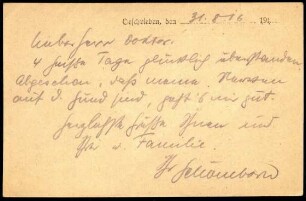 Geschrieben, den 31. 8. 16. 191
Lieber Herr Doktor.
4 heiße Tage glücklich überstanden
Abgesehen, daß meine Nerven
auf d. Hund sind, geht's mir gut.
Herzlichste Grüße Ihnen und
u. Familie.
Ihr Schönborn